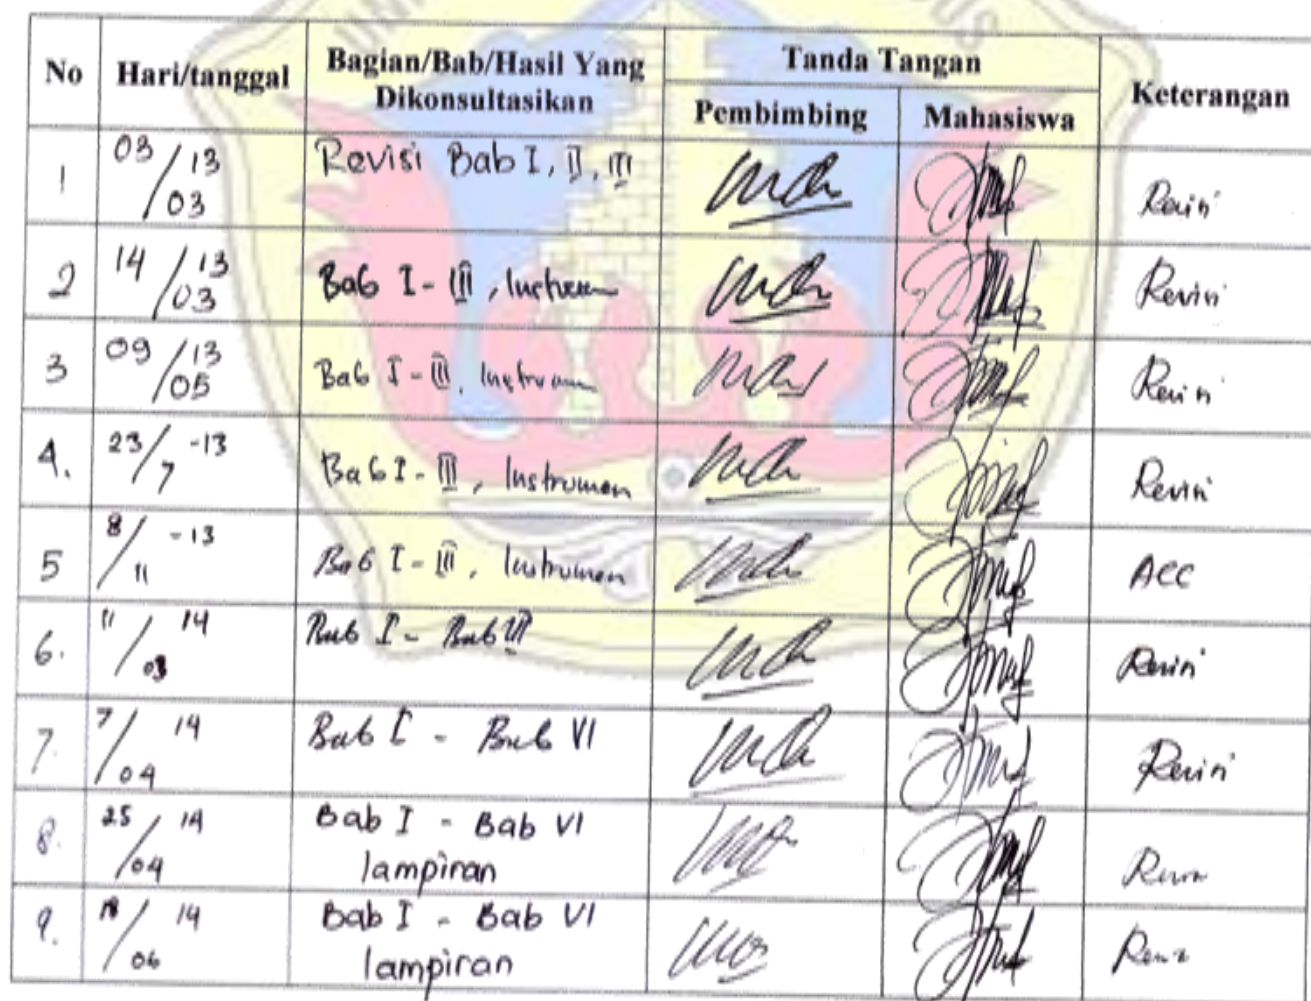 No Hari/tanggal Bagian/Bab/Hasil Yang Dikonsultasikan Tanda Tangan Keterangan
Pembimbing Mahasiswa
1 03/03 13 Revisi Bab I, II, III Revisi
2 14/03 13 Bab I - III, Instrumen Revisi
3 09/05 13 Bab I - III, Instrumen Revisi
4. 23/7 -13 Bab I - III, Instrumen Revisi
5 8/11 -13 Bab I - III, Instrumen ACC
6. 11/03 14 Bab I - Bab VI Revisi
7. 7/04 14 Bab I - Bab VI Revisi
8. 25/04 14 Bab I - Bab VI
lampiran
9. /06 14 Bab I - Bab VI
lampiran